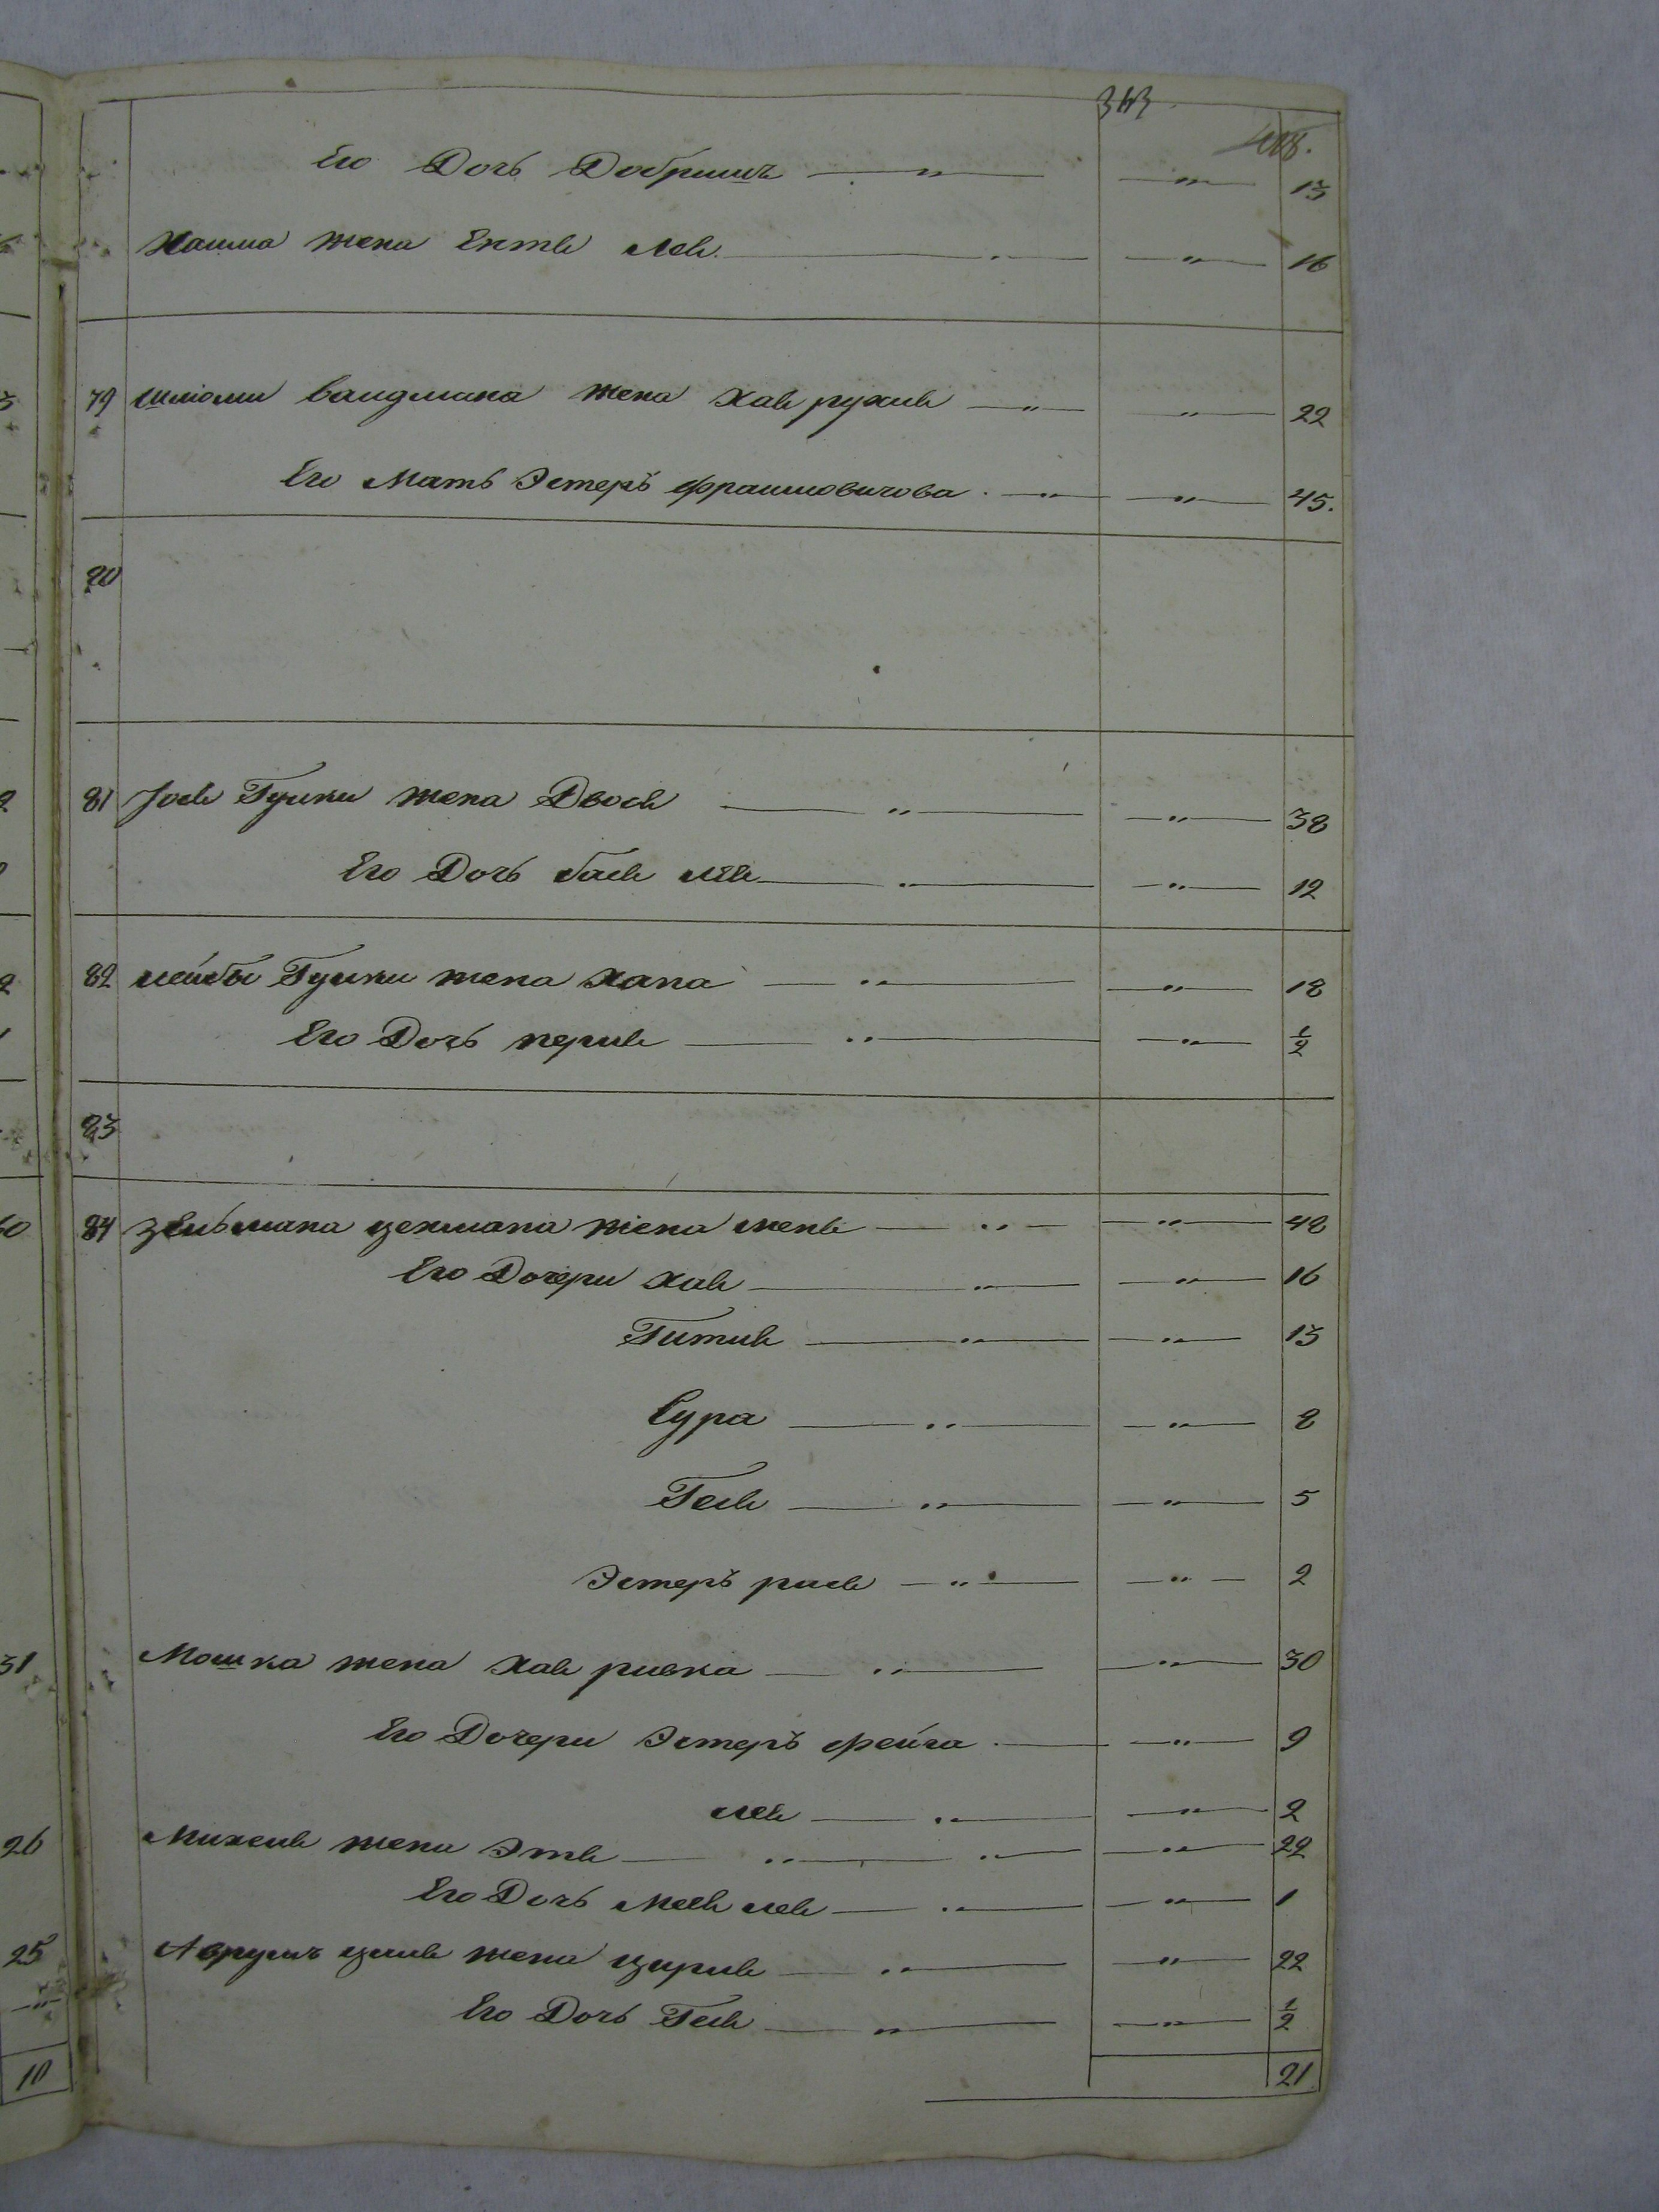 343
Его Дочь Добришъ — " — — " — 13
Хаима жена Ентѣ Леѣ — " — — " — 16
79 Шліоми Ваидмана жена Хаѣ рухлѣ — " — — " — 22
Его Мать Эстеръ Фраимовичова — " — — " — 45.
80
81 Іосѣ Гучки жена Двосѣ — " — — " — 38
Его Дочь басѣ леѣ — " — — " — 12
82 лейбы Гучки жена хана — " — — " — 18
Его Дочь перлѣ — " — — " — 1/2
83
84 зельмана цехмана жена менѣ — " — — " — 48
Его Дочери хаѣ — " — — " — 16
Гитлѣ — " — — " — 13
Сура — " — — " — 8
Гесѣ — " — — " — 5
Эстеръ расѣ — " — — " — 2
31 Мошка жена хаѣ ривка — " — — " — 30
Его Дочери Эстеръ фейга — " — — " — 9
леѣ — " — — " — 2
26 Михелѣ жена Этѣ — " — " — — " — 22
Его Дочь Меѣ леѣ — " — — " — 1
25 Аврумъ жена цирлѣ — " — — " — 22
Его Дочь Гесѣ — " — — " — 1/2
10 21